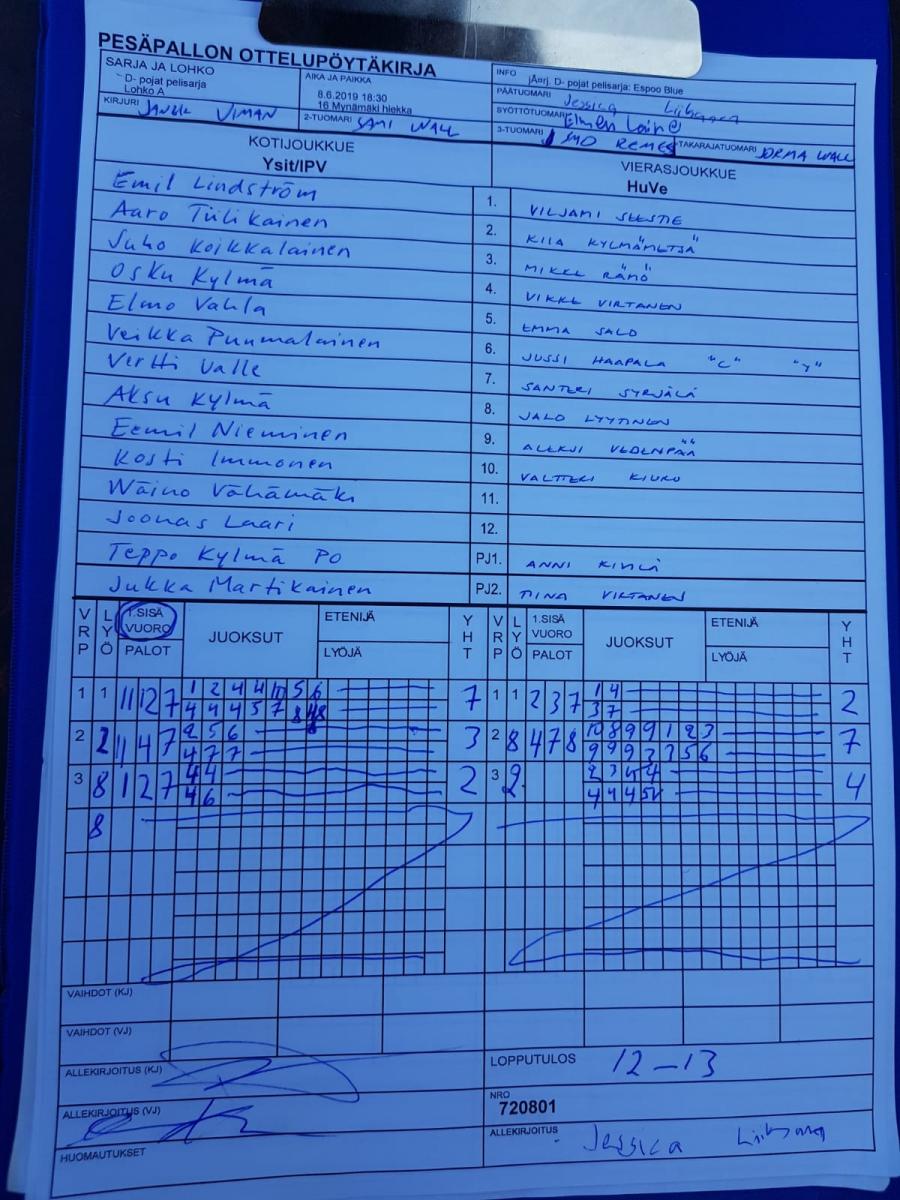 PESÄPALLON OTTELUPÖYTÄKIRJA
SARJA JA LOHKO
D- pojat pelisarja
Lohko A
KIRJURI
AIKA JA PAIKKA
8.6.2019 18:30
16 Mynämäki hiekka
2-TUOMARI SAMI WALL
INFO jÄorj. D- pojat pelisarja: Espoo Blue
PÄÄTUOMARI Jessica
SYÖTTÖTUOMARI Elmeri Laine
3-TUOMARI REMES TAKARAJATUOMARI JORMA WALL
KOTIJOUKKUE
Ysit/IPV
VIERASJOUKKUE
HuVe
Emil Lindström 1. VILJAMI
Aaro Tiilikainen 2. KYLMÄMETSÄ
Juho Koikkalainen 3. MIKKE RÄMÖ
Osku Kylmä 4. VIKKE VIRTANEN
Elmo Vahla 5. EMMA SALO
Veikka Puumalainen 6. JUSSI HAAPALA "C" "Y"
Vertti Valle 7. SANTERI SYRJÄLÄ
Aksu Kylmä 8. JALO LYYTINEN
Eemil Nieminen 9. ALEKSI VEDENPÄÄ
Kosti Immonen 10. VALTTERI KIURU
Wäinö Vähämäki 11.
Joonas Laari 12.
Teppo Kylmä PO PJ1. ANNI
Jukka Martikainen PJ2. TIINA VIRTANEN
VRP LYÖ 1.SISÄ VUORO PALOT JUOKSUT ETENIJÄ LYÖJÄ YHT VRP LYÖ 1.SISÄ VUORO PALOT JUOKSUT ETENIJÄ LYÖJÄ YHT
1 1 11 12 7 1 2 4 4 10 5 6 7 1 1 2 3 7 1 4 2
4 4 4 5 7 8 3 7
2 2 11 4 7 2 5 6 3 2 8 4 7 8 10 8 9 9 1 2 3 7
4 7 7 9 9 9 3 3 5 6
3 8 1 2 7 4 4 2 3 2 2 3 5 4 4
4 6 4 4 4 5
8
VAIHDOT (KJ)
VAIHDOT (VJ)
ALLEKIRJOITUS (KJ)
LOPPUTULOS 12-13
ALLEKIRJOITUS (VJ)
NRO
720801
HUOMAUTUKSET
ALLEKIRJOITUS Jessica